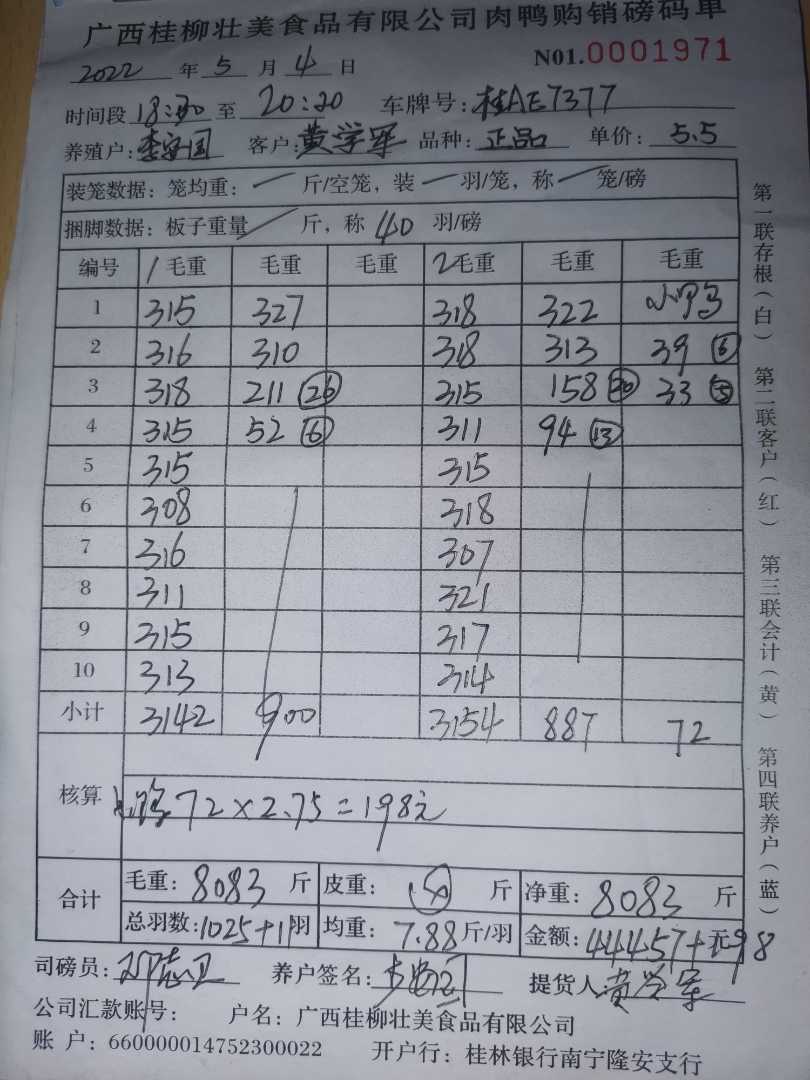 广西桂柳壮美食品有限公司肉鸭购销磅码单
2022 年 5 月 4 日 N01.0001971
时间段 18:30 至 20:20 车牌号: 桂AE7377
养殖户: 李安国 客户: 黄学军 品种: 正品 单价: 5.5
装笼数据: 笼均重: 一 斤/空笼, 装 一 羽/笼, 称 一 笼/磅
捆脚数据: 板子重量 / 斤, 称 40 羽/磅
编号 1 毛重 毛重 毛重 2 毛重 毛重 毛重
1 315 327 318 322 小鸭
2 316 310 318 313 39 ⑥
3 318 211 (26) 315 158 (20) 33 ⑤
4 315 52 ⑥ 311 94 (13)
5 315 315
6 308 318
7 316 307
8 311 321
9 315 317
10 313 314
小计 3142 900 3154 887 72
核算
小鸭 72×2.75=198元
合计 毛重: 8083 斤 皮重: 斤 净重: 8083 斤
总羽数: 1025+11 羽 均重: 7.88 斤/羽 金额: 44457+ 元 198
司磅员: 邓志卫 养户签名: 提货人 黄学军
公司汇款账号: 户名: 广西桂柳壮美食品有限公司
账 户: 660000014752300022 开户行: 桂林银行南宁隆安支行
第一联存根(白) 第二联客户(红) 第三联会计(黄) 第四联养户(蓝)